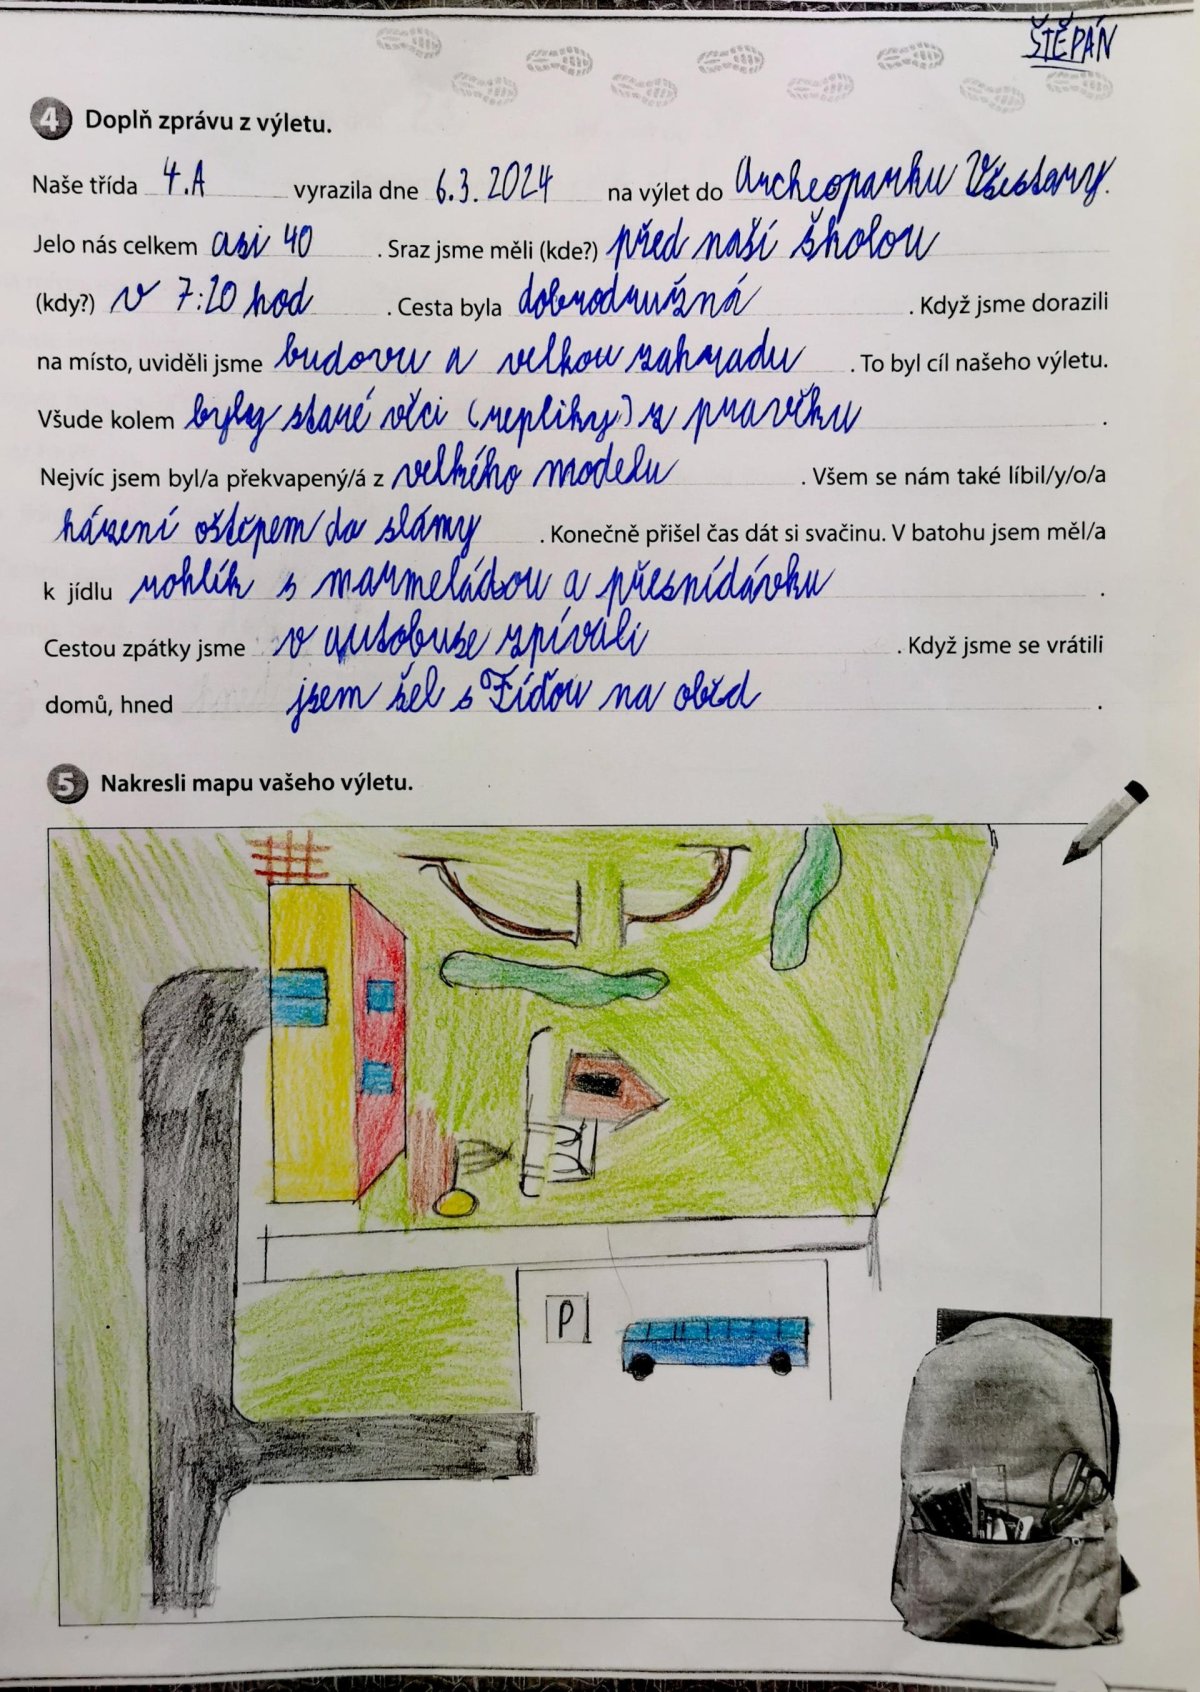 ŠTĚPÁN
4 Doplň zprávu z výletu.
Naše třída 4.A vyrazila dne 6.3. 2024 na výlet do Archeoparku Všestary.
Jelo nás celkem asi 40 . Sraz jsme měli (kde?) před naší školou
(kdy?) v 7:20 hod . Cesta byla dobrodružná . Když jsme dorazili
na místo, uviděli jsme budovu a velkou zahradu . To byl cíl našeho výletu.
Všude kolem byly staré věci (repliky) z pravěku .
Nejvíc jsem byl/a překvapený/á z velkého modelu . Všem se nám také líbil/y/o/a
házení oštěpem do slámy . Konečně přišel čas dát si svačinu. V batohu jsem měl/a
k jídlu rohlík s marmeládou a přesnídávku .
Cestou zpátky jsme v autobuse zpívali . Když jsme se vrátili
domů, hned jsem šel s Fíďou na oběd .
5 Nakresli mapu vašeho výletu.
P